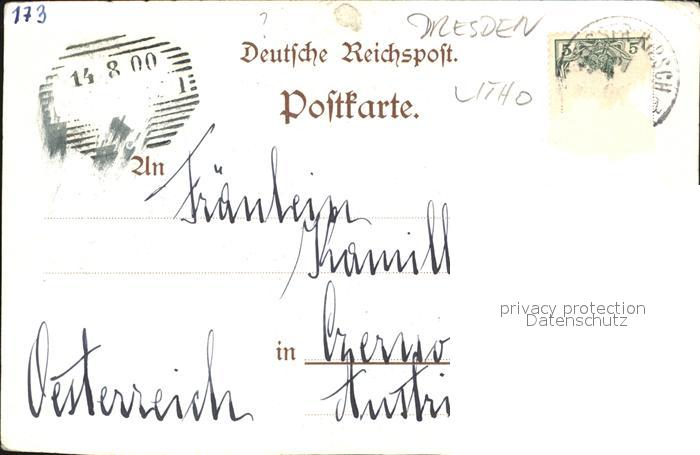 173
?
DRESDEN
14 8 00
1
Deutsche Reichspost.
5 5
LITHO
Postkarte.
An
Fräulein
Kamill
privacy protection
Datenschutz
in Czerno
Oesterreich
Austri